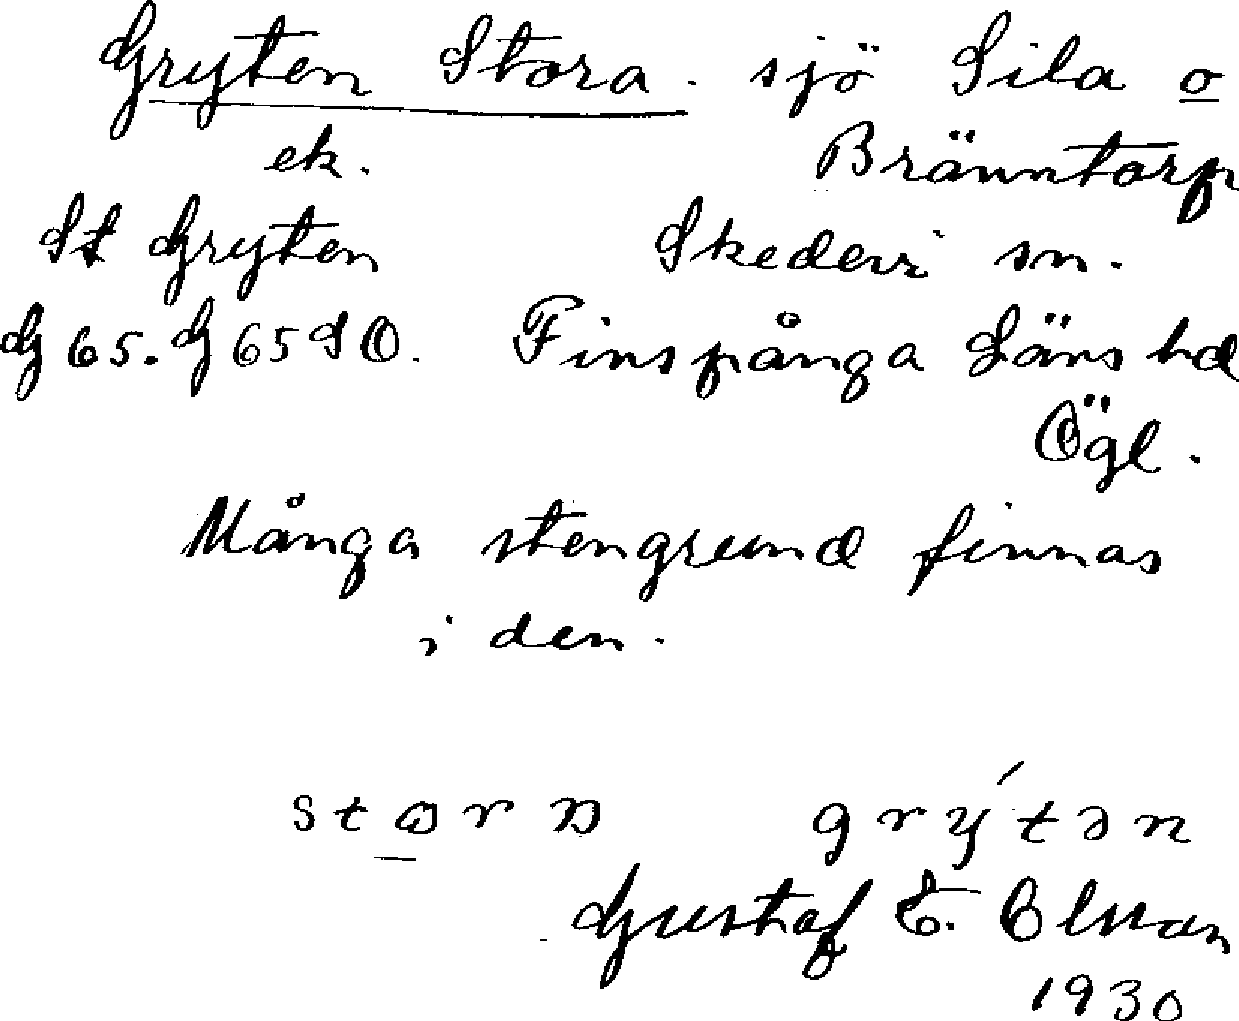 Gryten Stora. sjö Sila o
ek. Bränntorp
St Gryten Skedevi sn.
G 65. G 65 SO. Finspånga Läns hd
Ögl.
Många stengrund finnas
i den.
grýtən
Gustaf E.
1930